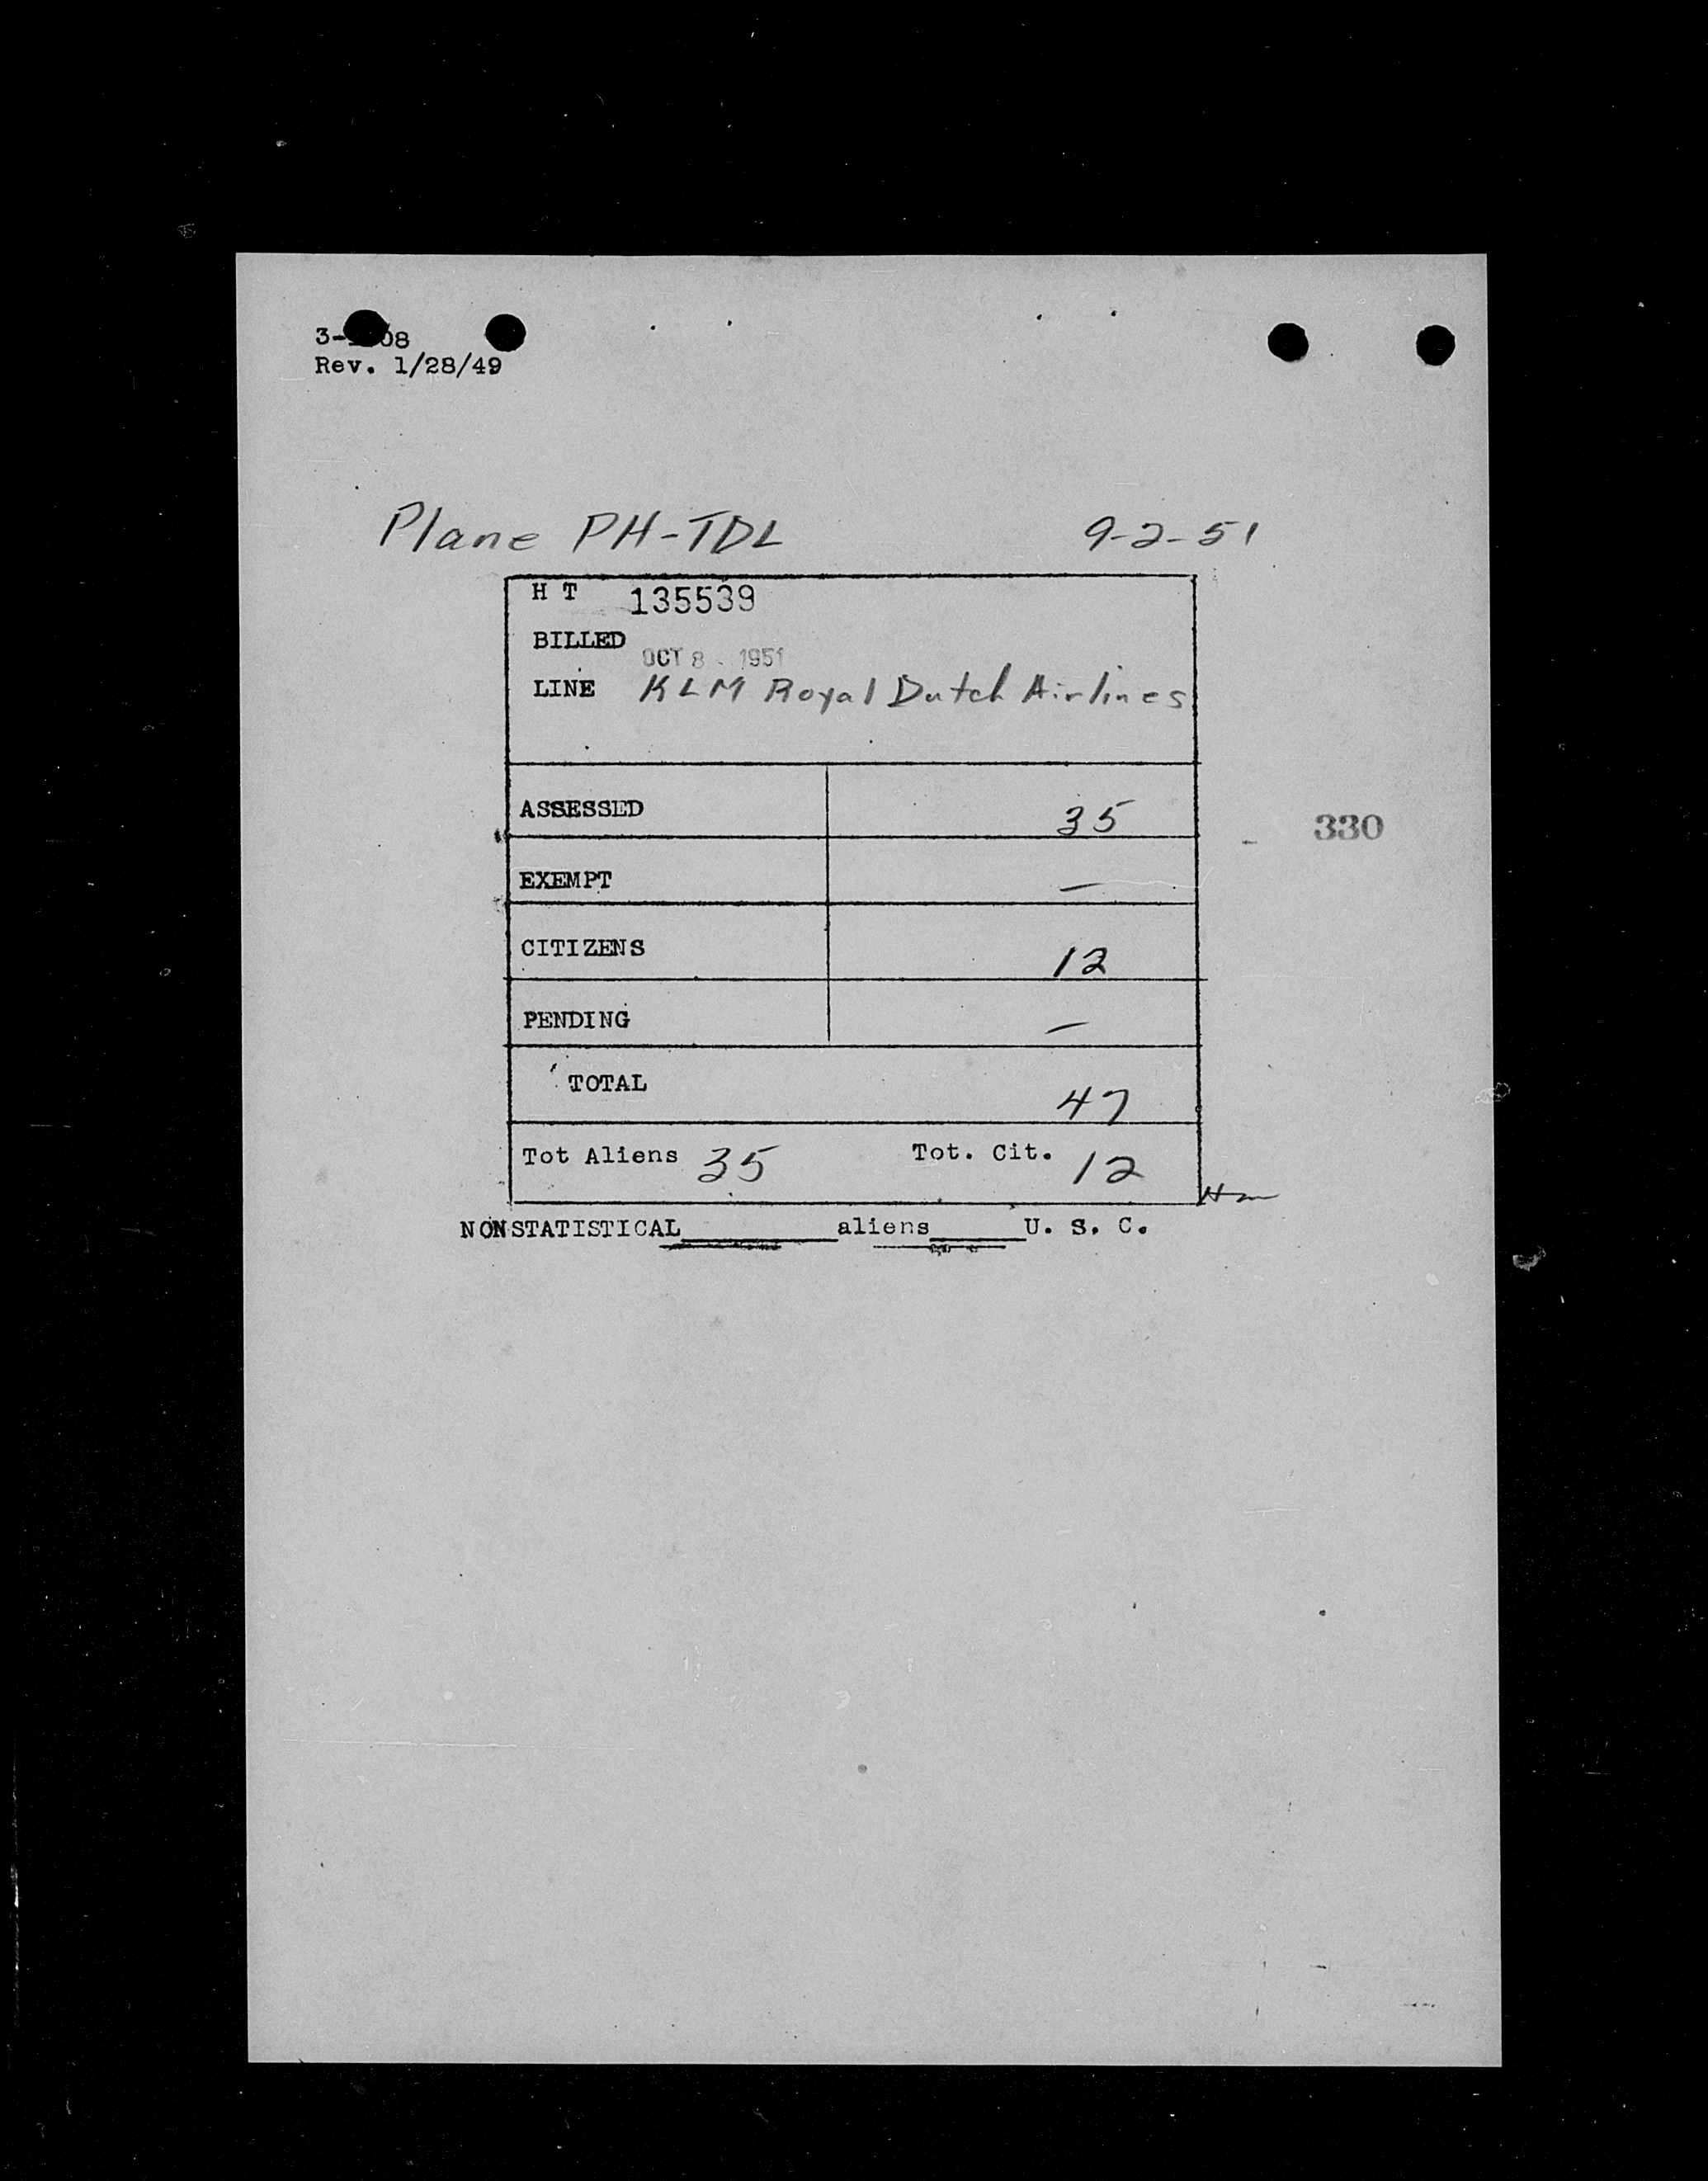 Rev. 1/28/49
Plane PH-TDL 9-2-51
H T 135539
BILLED OCT 8 1951
LINE KLM Royal Dutch Airlines
ASSESSED 35
330
EXEMPT —
CITIZENS 12
PENDING —
TOTAL 47
Tot Aliens 35 Tot. Cit. 12
NONSTATISTICAL________aliens_____U. S. C.